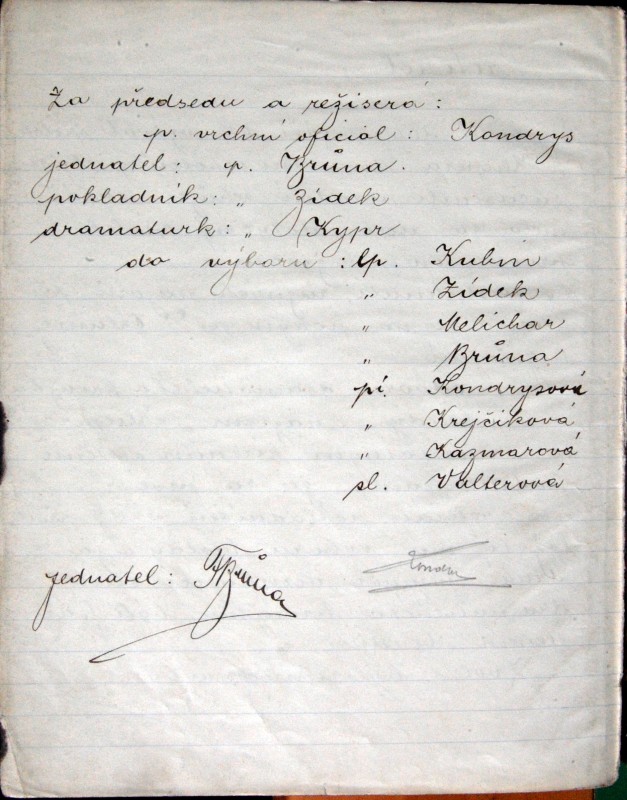 Za předsedu a režiséra:
p. vrchní oficiál: Kondrys
jednatel: p. Brůna.
pokladník: „ Zídek
dramaturk: „ Kypr
do výboru: p. Kubín
„ Zídek
„ Melichar
„ Brůna
pí. Kondrysová
„ Krejčiková
„ Kazmarová
sl. Valterová
jednatel: Brůna